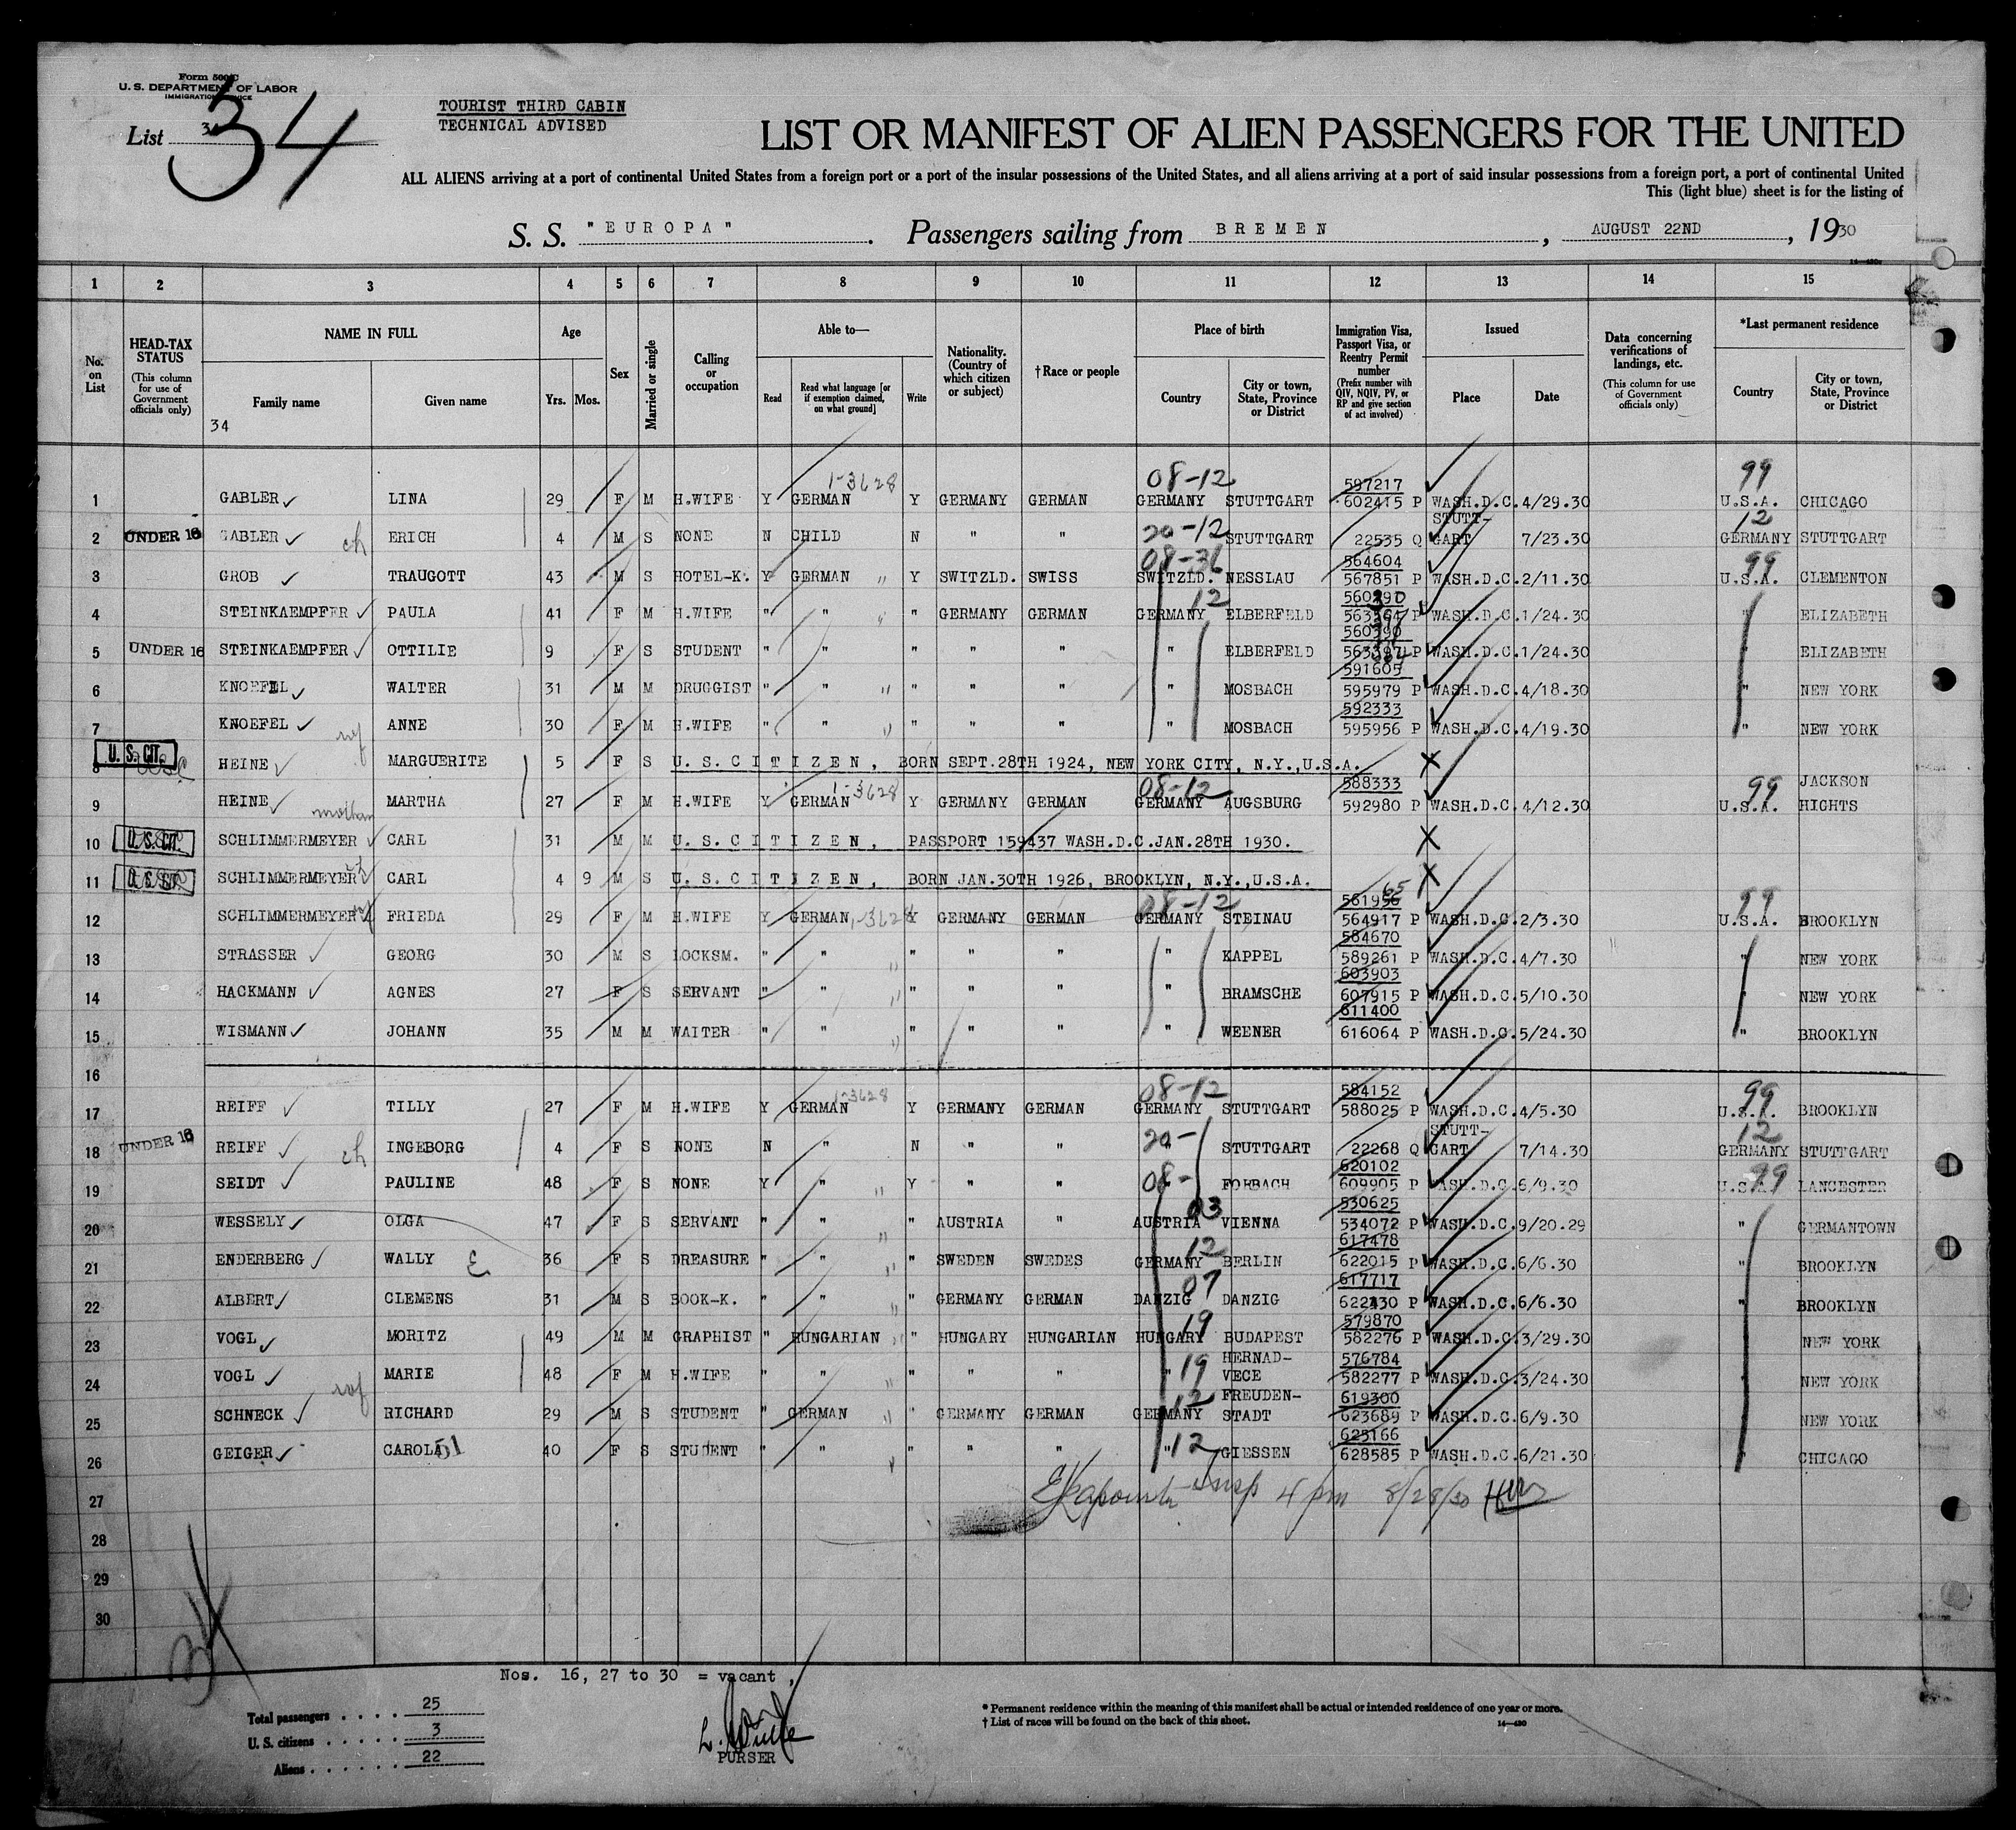 Form 500 C
U. S. DEPARTMENT OF LABOR
IMMIGRATION SERVICE
List 34
34
TOURIST THIRD CABIN
TECHNICAL ADVISED
LIST OR MANIFEST OF ALIEN PASSENGERS FOR THE UNITED
ALL ALIENS arriving at a port of continental United States from a foreign port or a port of the insular possessions of the United States, and all aliens arriving at a port of said insular possessions from a foreign port, a port of continental United
This (light blue) sheet is for the listing of
S. S. "EUROPA". Passengers sailing from BREMEN, AUGUST 22ND, 1930
1 2 3 4 5 6 7 8 9 10 11 12 13 14 15
No. on List
HEAD-TAX STATUS (This column for use of Government officials only)
NAME IN FULL
Family name Given name
Age Yrs. Mos.
Sex
Married or single
Calling or occupation
Able to—
Read Read what language [or if exemption claimed, on what ground] Write
Nationality. (Country of which citizen or subject)
†Race or people
Place of birth
Country City or town, State, Province or District
Immigration Visa, Passport Visa, or Reentry Permit number (Prefix number with QIV, NQIV, PV, or RP and give section of act involved)
Issued
Place Date
Data concerning verifications of landings, etc. (This column for use of Government officials only)
*Last permanent residence
Country City or town, State, Province or District
34
1-3628 08-12 597217 99
1 GABLER LINA 29 F M H.WIFE Y GERMAN Y GERMANY GERMAN GERMANY STUTTGART 602415 P WASH.D.C. 4/29.30 U.S.A. CHICAGO
2 UNDER 16 GABLER ch ERICH 4 M S NONE N CHILD N " " 20-12 STUTTGART 22535 Q STUTT-GART 7/23.30 12 GERMANY STUTTGART
08-36 564604 99
3 GROB TRAUGOTT 43 M S HOTEL-K. Y GERMAN Y SWITZLD. SWISS SWITZLD. NESSLAU 567851 P WASH.D.C. 2/11.30 U.S.A. CLEMENTON
4 STEINKAEMPFER PAULA 41 F M H.WIFE " " " GERMANY GERMAN GERMANY 12 ELBERFELD P WASH.D.C. 1/24.30 " ELIZABETH
560390
5 UNDER 16 STEINKAEMPFER OTTILIE 9 F S STUDENT " " " " " " ELBERFELD P WASH.D.C. 1/24.30 " ELIZABETH
591605
6 KNOEFEL WALTER 31 M M DRUGGIST " " " " " " MOSBACH 595979 P WASH.D.C. 4/18.30 " NEW YORK
592333
7 KNOEFEL wf ANNE 30 F M H.WIFE " " " " " " MOSBACH 595956 P WASH.D.C. 4/19.30 " NEW YORK
8 U. S. CIT. HEINE MARGUERITE 5 F S U.S. CITIZEN, BORN SEPT.28TH 1924, NEW YORK CITY, N.Y.,U.S.A. X
1-3628 08-12 588333 99 JACKSON
9 HEINE mother MARTHA 27 F M H.WIFE Y GERMAN Y GERMANY GERMAN GERMANY AUGSBURG 592980 P WASH.D.C. 4/12.30 U.S.A. HIGHTS
10 U. S. CIT. SCHLIMMERMEYER CARL 31 M M U.S. CITIZEN, PASSPORT 159437 WASH.D.C.JAN.28TH 1930. X
11 U. S. CIT. SCHLIMMERMEYER CARL 4 9 M S U.S. CITIZEN, BORN JAN.30TH 1926, BROOKLYN, N.Y.,U.S.A. X
08-12 561956 65 99
12 SCHLIMMERMEYER wf FRIEDA 29 F M H.WIFE Y GERMAN 1-3628 Y GERMANY GERMAN GERMANY STEINAU 564917 P WASH.D.C. 2/3.30 U.S.A. BROOKLYN
584670
13 STRASSER GEORG 30 M S LOCKSM. " " " " " " KAPPEL 589261 P WASH.D.C. 4/7.30 " NEW YORK
603903
14 HACKMANN AGNES 27 F S SERVANT " " " " " " BRAMSCHE 607915 P WASH.D.C. 5/10.30 " NEW YORK
611400
15 WISMANN JOHANN 35 M M WAITER " " " " " " WEENER 616064 P WASH.D.C. 5/24.30 " BROOKLYN
16
1-3628 08-12 584152 99
17 REIFF TILLY 27 F M H.WIFE Y GERMAN Y GERMANY GERMAN GERMANY STUTTGART 588025 P WASH.D.C. 4/5.30 U.S.A. BROOKLYN
18 UNDER 16 REIFF ch INGEBORG 4 F S NONE N " N " " 20- " STUTTGART 22268 Q STUTT-GART 7/14.30 12 GERMANY STUTTGART
620102
19 SEIDT PAULINE 48 F S NONE Y " Y " " 08- " FORBACH 609905 P WASH.D.C. 6/9.30 U.S.A. 99 LANCESTER
530625
20 WESSELY OLGA 47 F S SERVANT " " " AUSTRIA " AUSTRIA 03 VIENNA 534072 P WASH.D.C. 9/20.29 " GERMANTOWN
617478
21 ENDERBERG WALLY E 36 F S DREASURE " " " SWEDEN SWEDES GERMANY 12 BERLIN 622015 P WASH.D.C. 6/6.30 " BROOKLYN
617717
22 ALBERT CLEMENS 31 M S BOOK-K. " " " GERMANY GERMAN DANZIG 07 DANZIG 622430 P WASH.D.C. 6/6.30 " BROOKLYN
579870
23 VOGL MORITZ 49 M M GRAPHIST " HUNGARIAN " HUNGARY HUNGARIAN HUNGARY 19 BUDAPEST 582276 P WASH.D.C. 3/29.30 " NEW YORK
576784
24 VOGL wf MARIE 48 F M H.WIFE " " " " " " 19 HERNAD-VECE 582277 P WASH.D.C. 3/24.30 " NEW YORK
619300
25 SCHNECK RICHARD 29 M S STUDENT " GERMAN " GERMANY GERMAN GERMANY 12 FREUDEN-STADT 623689 P WASH.D.C. 6/9.30 " NEW YORK
625166
26 GEIGER CAROLA 51 40 F S STUDENT " " " " " " 12 GIESSEN 628585 P WASH.D.C. 6/21.30 " CHICAGO
27 Insp 4 pm 8/28/30
28
29
30
34
Nos. 16, 27 to 30 = vacant,
Total passengers . . . . 25
U. S. citizens . . . . . 3
Aliens . . . . . . 22
PURSER
* Permanent residence within the meaning of this manifest shall be actual or intended residence of one year or more.
† List of races will be found on the back of this sheet.
14—430